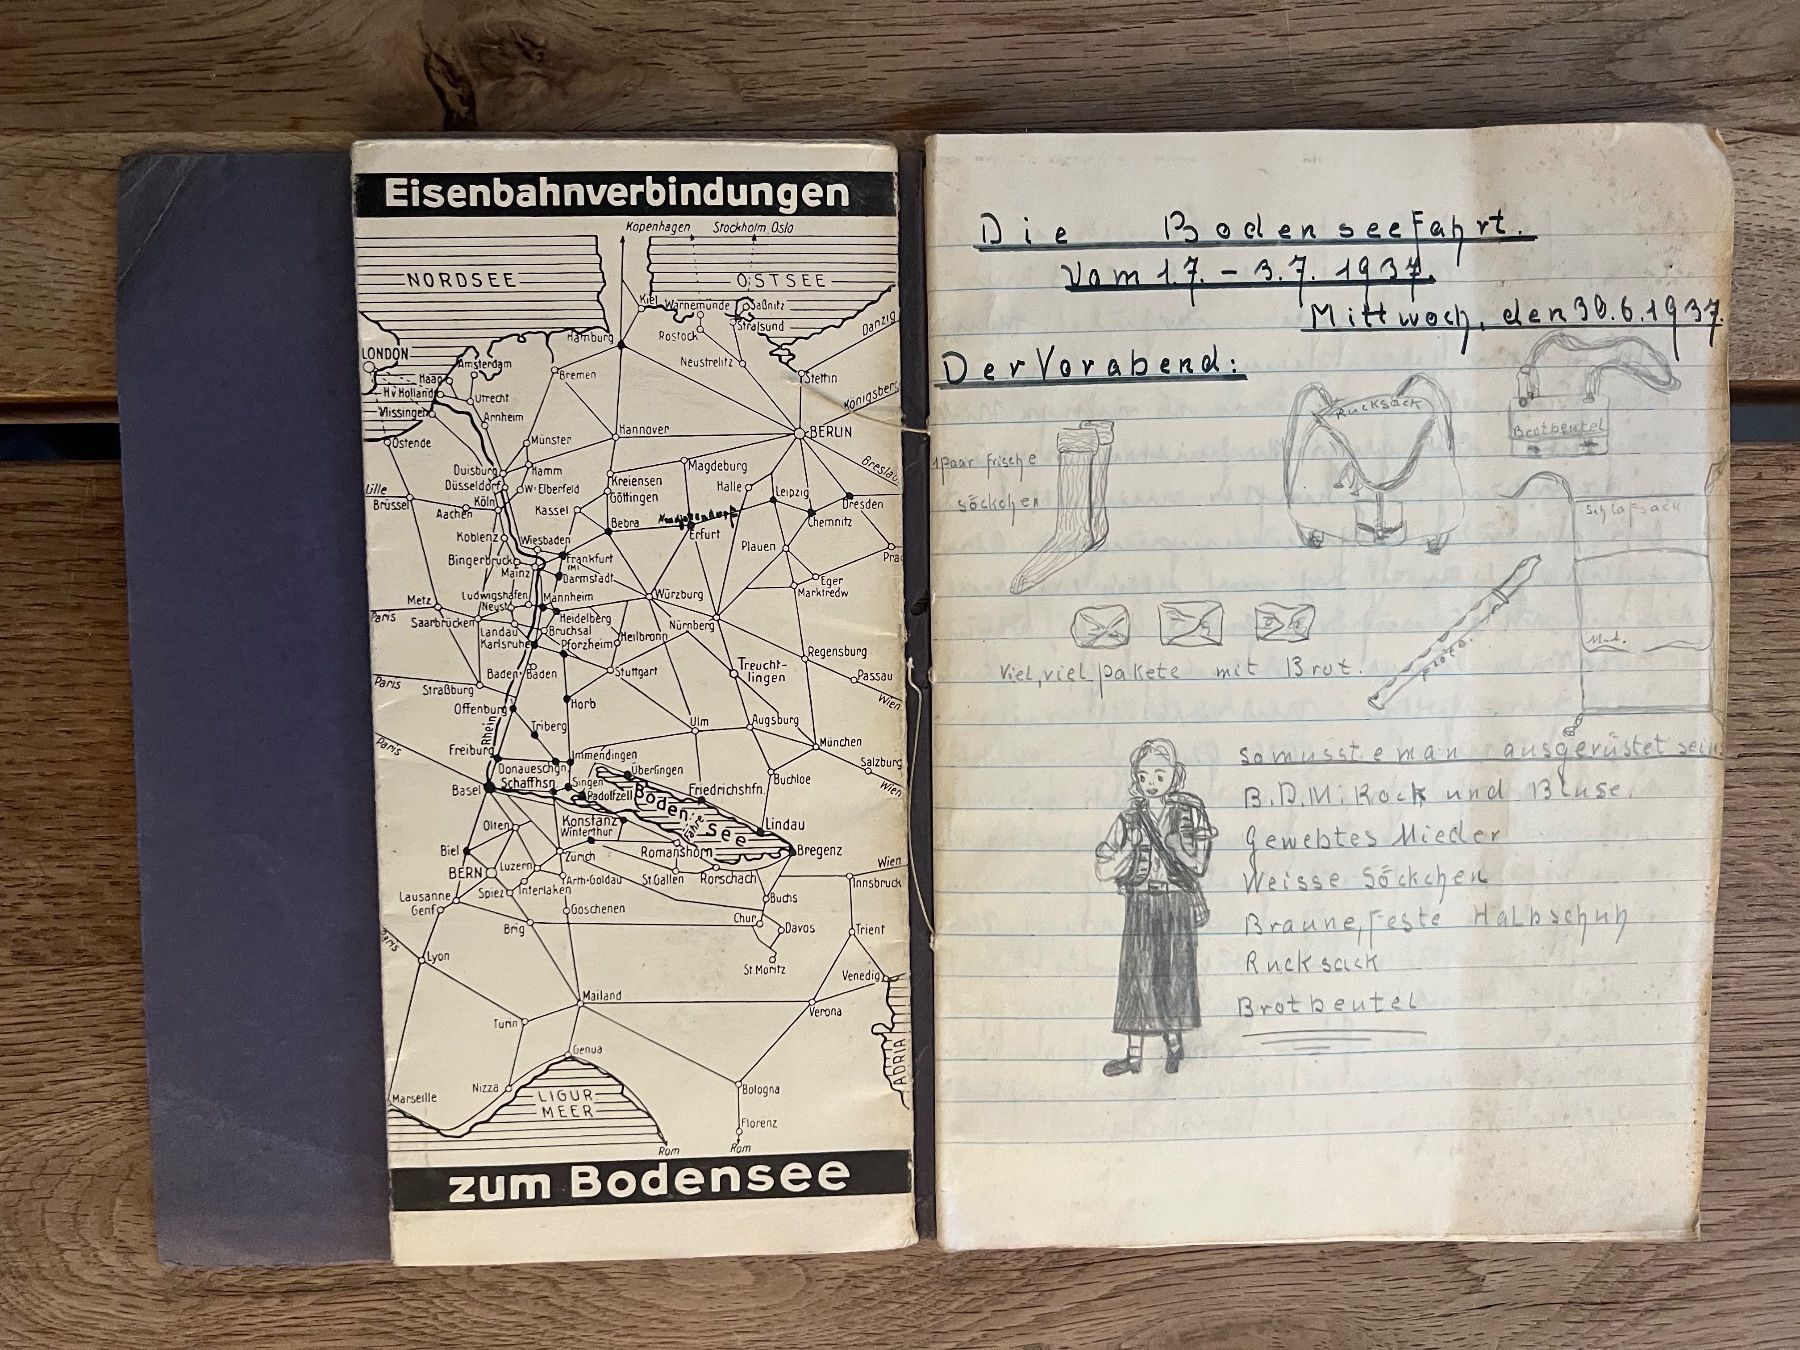 Eisenbahnverbindungen
Kopenhagen Stockholm, Oslo
NORDSEE OSTSEE
Kiel Warnemünde Saßnitz
Rostock Stralsund
Danzig
Hamburg
Neustrelitz
LONDON
Amsterdam
Haag
Bremen
Stettin
H.v Holland
Utrecht
Königsberg
Vlissingen
Arnheim
Ostende
Münster
Hannover
BERLIN
Breslau
Duisburg
Hamm
Magdeburg
Düsseldorf
W.-Elberfeld
Kreiensen
Halle
Leipzig
Lille
Göttingen
Brüssel
Köln
Dresden
Aachen
Kassel
Chemnitz
Bebra
Erfurt
Koblenz
Wiesbaden
Plauen
Bingerbrück
Frankfurt
(M)
Mainz
Darmstadt
Eger
Marktredw
Metz
Ludwigshafen
Mannheim
Würzburg
Neust
Paris
Saarbrücken
Heidelberg
Landau
Bruchsal
Heilbronn
Nürnberg
Karlsruhe
Pforzheim
Regensburg
Baden-Baden
Stuttgart
Treucht-
lingen
Passau
Paris
Straßburg
Wien
Offenburg
Horb
Rhein
Triberg
Ulm
Augsburg
Paris
Freiburg
Immendingen
München
Donaueschgn.
Überlingen
Salzburg
Schaffhsn
Singen
Buchloe
Basel
Radolfzell
Friedrichshfn.
Wien
Boden-See
Fähre
Konstanz
Olten
Winterthur
Lindau
Biel
Zürich
Romanshorn
Bregenz
Luzern
Wien
BERN
St.Gallen
Rorschach
Arth-Goldau
Innsbruck
Spiez
Interlaken
Lausanne
Buchs
Genf
Göschenen
Chur
Brig
Davos
Trient
Paris
Lyon
St.Moritz
Venedig
Mailand
Verona
Turin
ADRIA
Genua
Nizza
Bologna
Marseille
LIGUR
MEER
Florenz
Rom Rom
zum Bodensee
Die Bodenseefahrt.
Vom 1.7. – 3.7. 1937.
Mittwoch, den 30.6.1937.
Der Vorabend:
Rucksack
Brotbeutel
1 Paar frische
Söckchen
Schlafsack
Flöte.
Viel, viel Pakete mit Brot.
So musste man ausgerüstet sein:
B.D.M. Rock und Bluse.
Gewebtes Mieder
Weisse Söckchen
Braune, feste Halbschuh
Rucksack
Brotbeutel